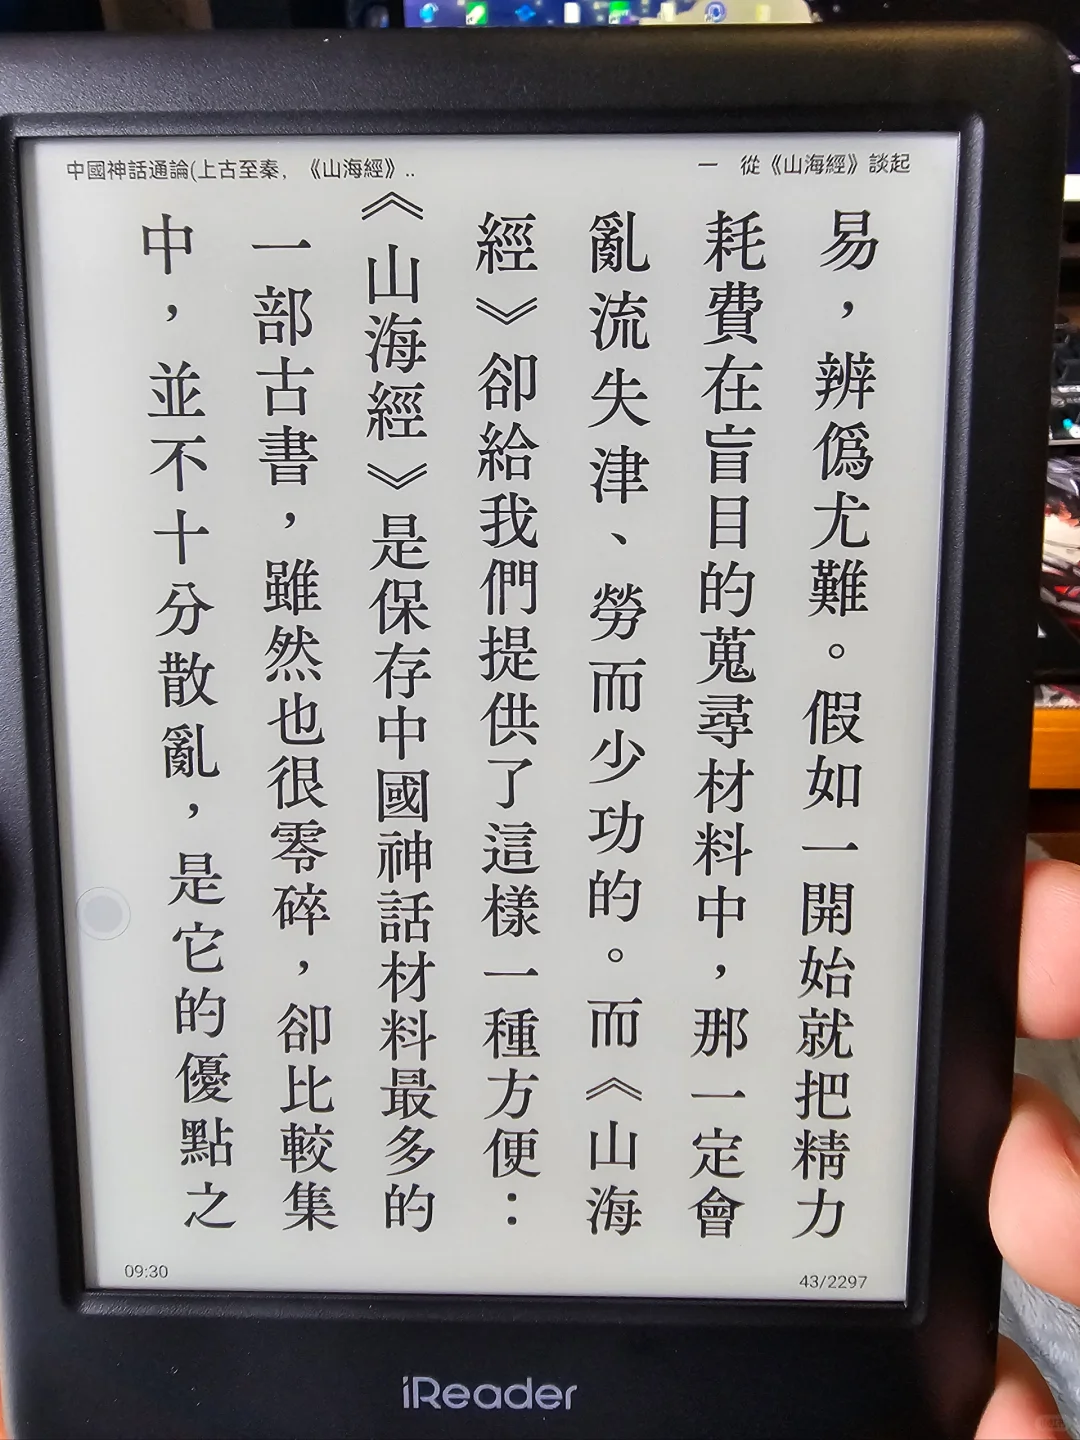 中國神話通論(上古至秦，《山海經》..
一 從《山海經》談起
易，辨僞尤難。假如一開始就把精力
耗費在盲目的蒐尋材料中，那一定會
亂流失津、勞而少功的。而《山海
經》卻給我們提供了這樣一種方便：
《山海經》是保存中國神話材料最多的
一部古書，雖然也很零碎，卻比較集
中，並不十分散亂，是它的優點之
09:30
43/2297
iReader